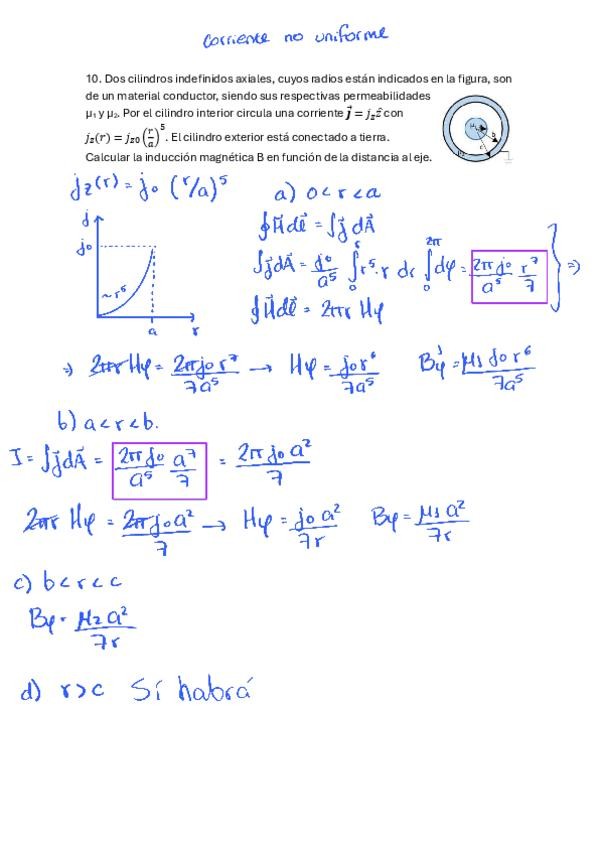 corriente no uniforme
10. Dos cilindros indefinidos axiales, cuyos radios están indicados en la figura, son
de un material conductor, siendo sus respectivas permeabilidades
μ₁ y μ₂. Por el cilindro interior circula una corriente j⃗ = j_z ẑ con
j_z(r) = j_z0 (r/a)^5. El cilindro exterior está conectado a tierra.
Calcular la inducción magnética B en función de la distancia al eje.
jz(r) = j0 (r/a)^5
a) 0<r<a
j
j0
~r^5
a
r
∮H⃗dl⃗ = ∫j⃗dA⃗
∫j⃗dA⃗ = j0/a^5 ∫_0^r r^5·r dr ∫_0^{2π} dφ = 2π j0/a^5 r^7/7 } =>
∮H⃗dl⃗ = 2πr Hφ
=> 2πr Hφ = 2π j0 r^7/7a^5 → Hφ = j0 r^6/7a^5 Bφ = μ1 j0 r^6/7a^5
b) a<r<b.
I = ∫j⃗dA⃗ = 2π j0/a^5 a^7/7 = 2π j0 a^2/7
2πr Hφ = 2π j0 a^2/7 → Hφ = j0 a^2/7r Bφ = μ1 a^2/7r
c) b<r<c
Bφ = μ2 a^2/7r
d) r>c Sí habrá